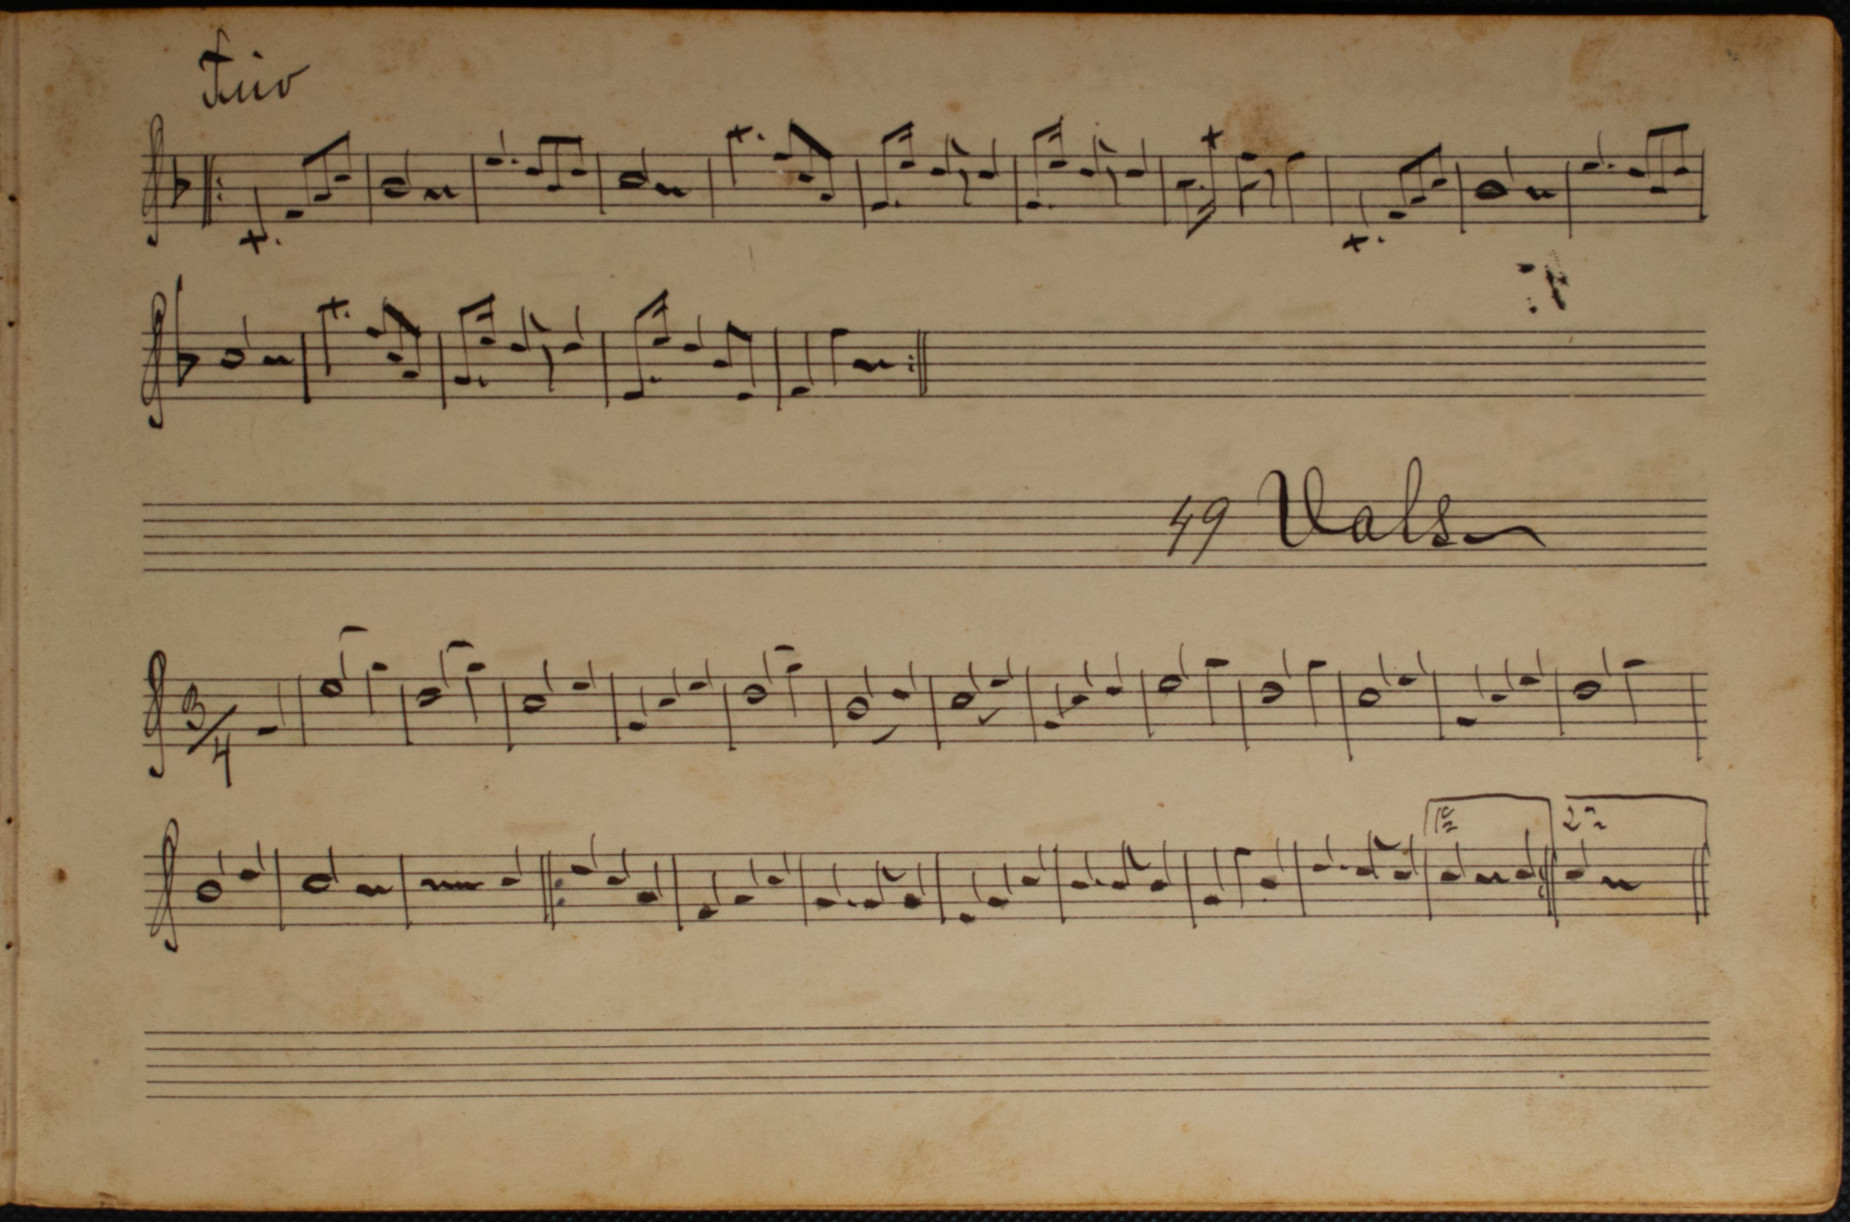 Trio
49 Vals
3/4
1ᵃ 2ᵃ